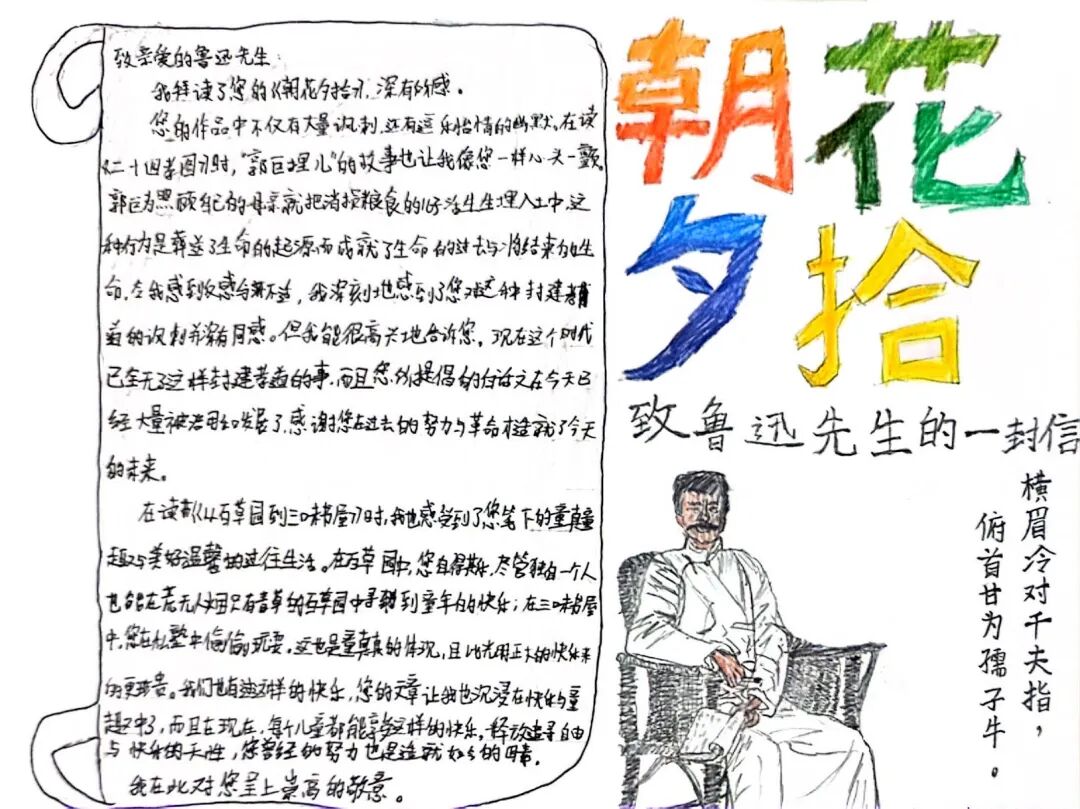 致亲爱的鲁迅先生:
我拜读了您的《朝花夕拾》,深有所感。
您的作品中不仅有大量讽刺,还有逗乐怡情的幽默。在读
《二十四孝图》时,“郭巨埋儿”的故事也让我像您一样心头一颤。
郭巨为照顾自己的母亲就把消损粮食的儿子活生生埋入土中,这
种行为是葬送了生命的起源而成就了生命的过去与将结束的生
命。令我感到,我深刻地感到了您对这种封建
的讽刺并深有同感。但我能很高兴地告诉您,现在这个时代
已全无了这样封建孝道的事,而且您们提倡的白话文在今天已
经大量被沿用和发展了,感谢您在过去的努力与革命才造就了今天
的未来。
在读都《从百草园到三味书屋》时,我也感受到了您笔下的童真童
趣与美好温馨的过往生活。在百草园中,您自得其乐,尽管独自一个人
也能在荒无人烟只有青草的百草园中寻到童年的快乐;在三味书屋
中,您在私塾中偷偷玩耍。这也是童真的体现,且比光明正大的快乐来
的更珍贵。我们也有过这样的快乐,您的文章让我也沉浸在快乐与童
趣中了,而且在现在,每个儿童都能享受这样的快乐,释放追寻自由
与快乐的天性,您曾经的努力也是造就如今的因素。
我在此对您呈上崇高的敬意。
朝花
夕拾
致鲁迅先生的一封信
横眉冷对千夫指,
俯首甘为孺子牛。